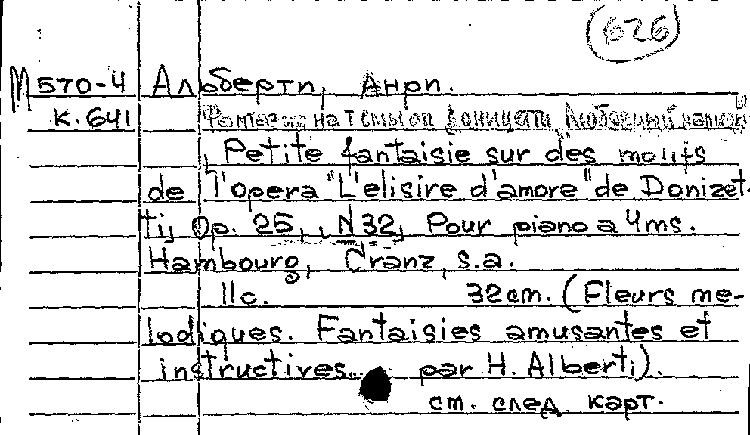 626
М 570-4 Альберти, Анри.
К. 641 Фантазия на темы оп Доницетти Любовный напиток
Petite fantaisie sur des motifs
de l'opera "L'elisire d'amore" de Donizet-
ti, Op. 25, N32, Pour piano a 4ms.
Hambourg, Cranz, s.a.
11c. 32cm. (Fleurs me-
lodiques. Fantaisies amusantes et
instructives... par H. Alberti).
ст. след. карт.